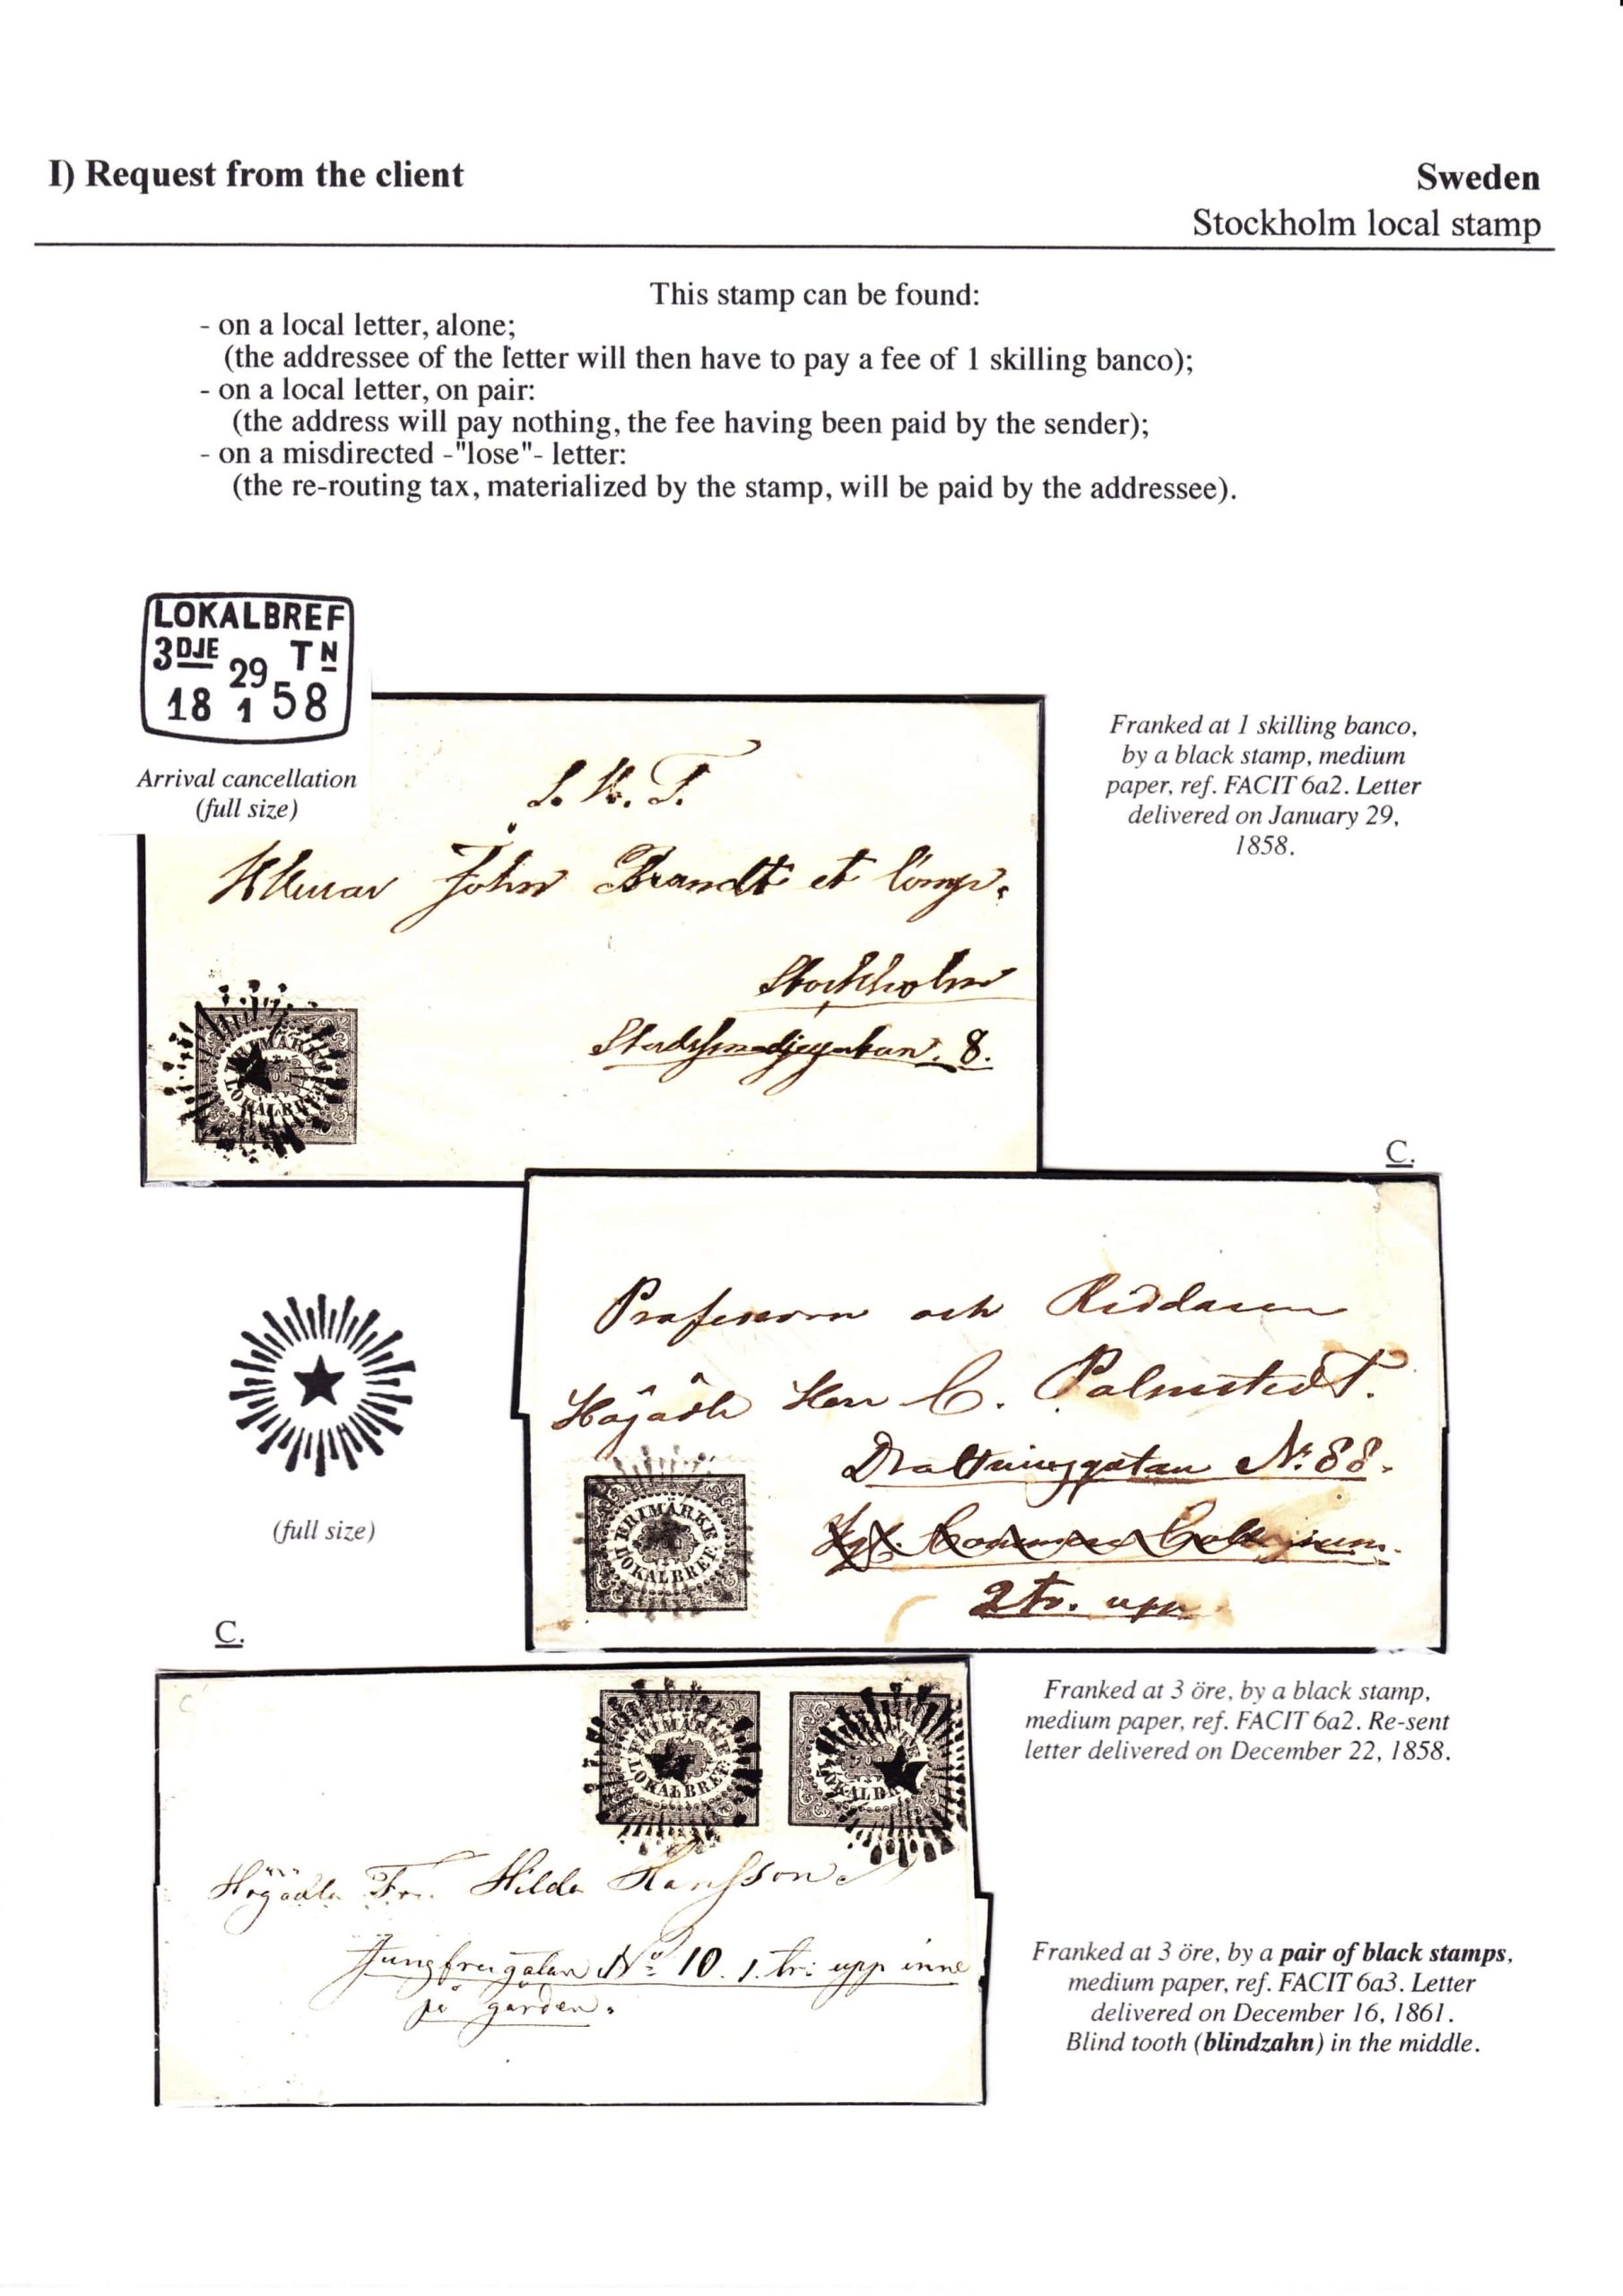 I) Request from the client
Sweden
Stockholm local stamp
This stamp can be found:
- on a local letter, alone;
(the addressee of the letter will then have to pay a fee of 1 skilling banco);
- on a local letter, on pair:
(the address will pay nothing, the fee having been paid by the sender);
- on a misdirected -"lose"- letter:
(the re-routing tax, materialized by the stamp, will be paid by the addressee).
LOKALBREF
3DJE TN
29
18 1 58
Arrival cancellation
(full size)
Franked at 1 skilling banco,
by a black stamp, medium
paper, ref. FACIT 6a2. Letter
delivered on January 29,
1858.
John Brandt et Comp.
Stockholm
8.
FRIMÄRKE
LOKALBREF
C.
Professorn och Riddaren
Herr C. Palmstedt.
No. 88.
2 tr. upp
FRIMÄRKE
LOKALBREF
(full size)
C.
Franked at 3 öre, by a black stamp,
medium paper, ref. FACIT 6a2. Re-sent
letter delivered on December 22, 1858.
FRIMÄRKE
LOKALBREF
Högädla Hilda Hansson
Jungfrugatan No 10. 1. tr: upp inne
på gården.
Franked at 3 öre, by a pair of black stamps,
medium paper, ref. FACIT 6a3. Letter
delivered on December 16, 1861.
Blind tooth (blindzahn) in the middle.